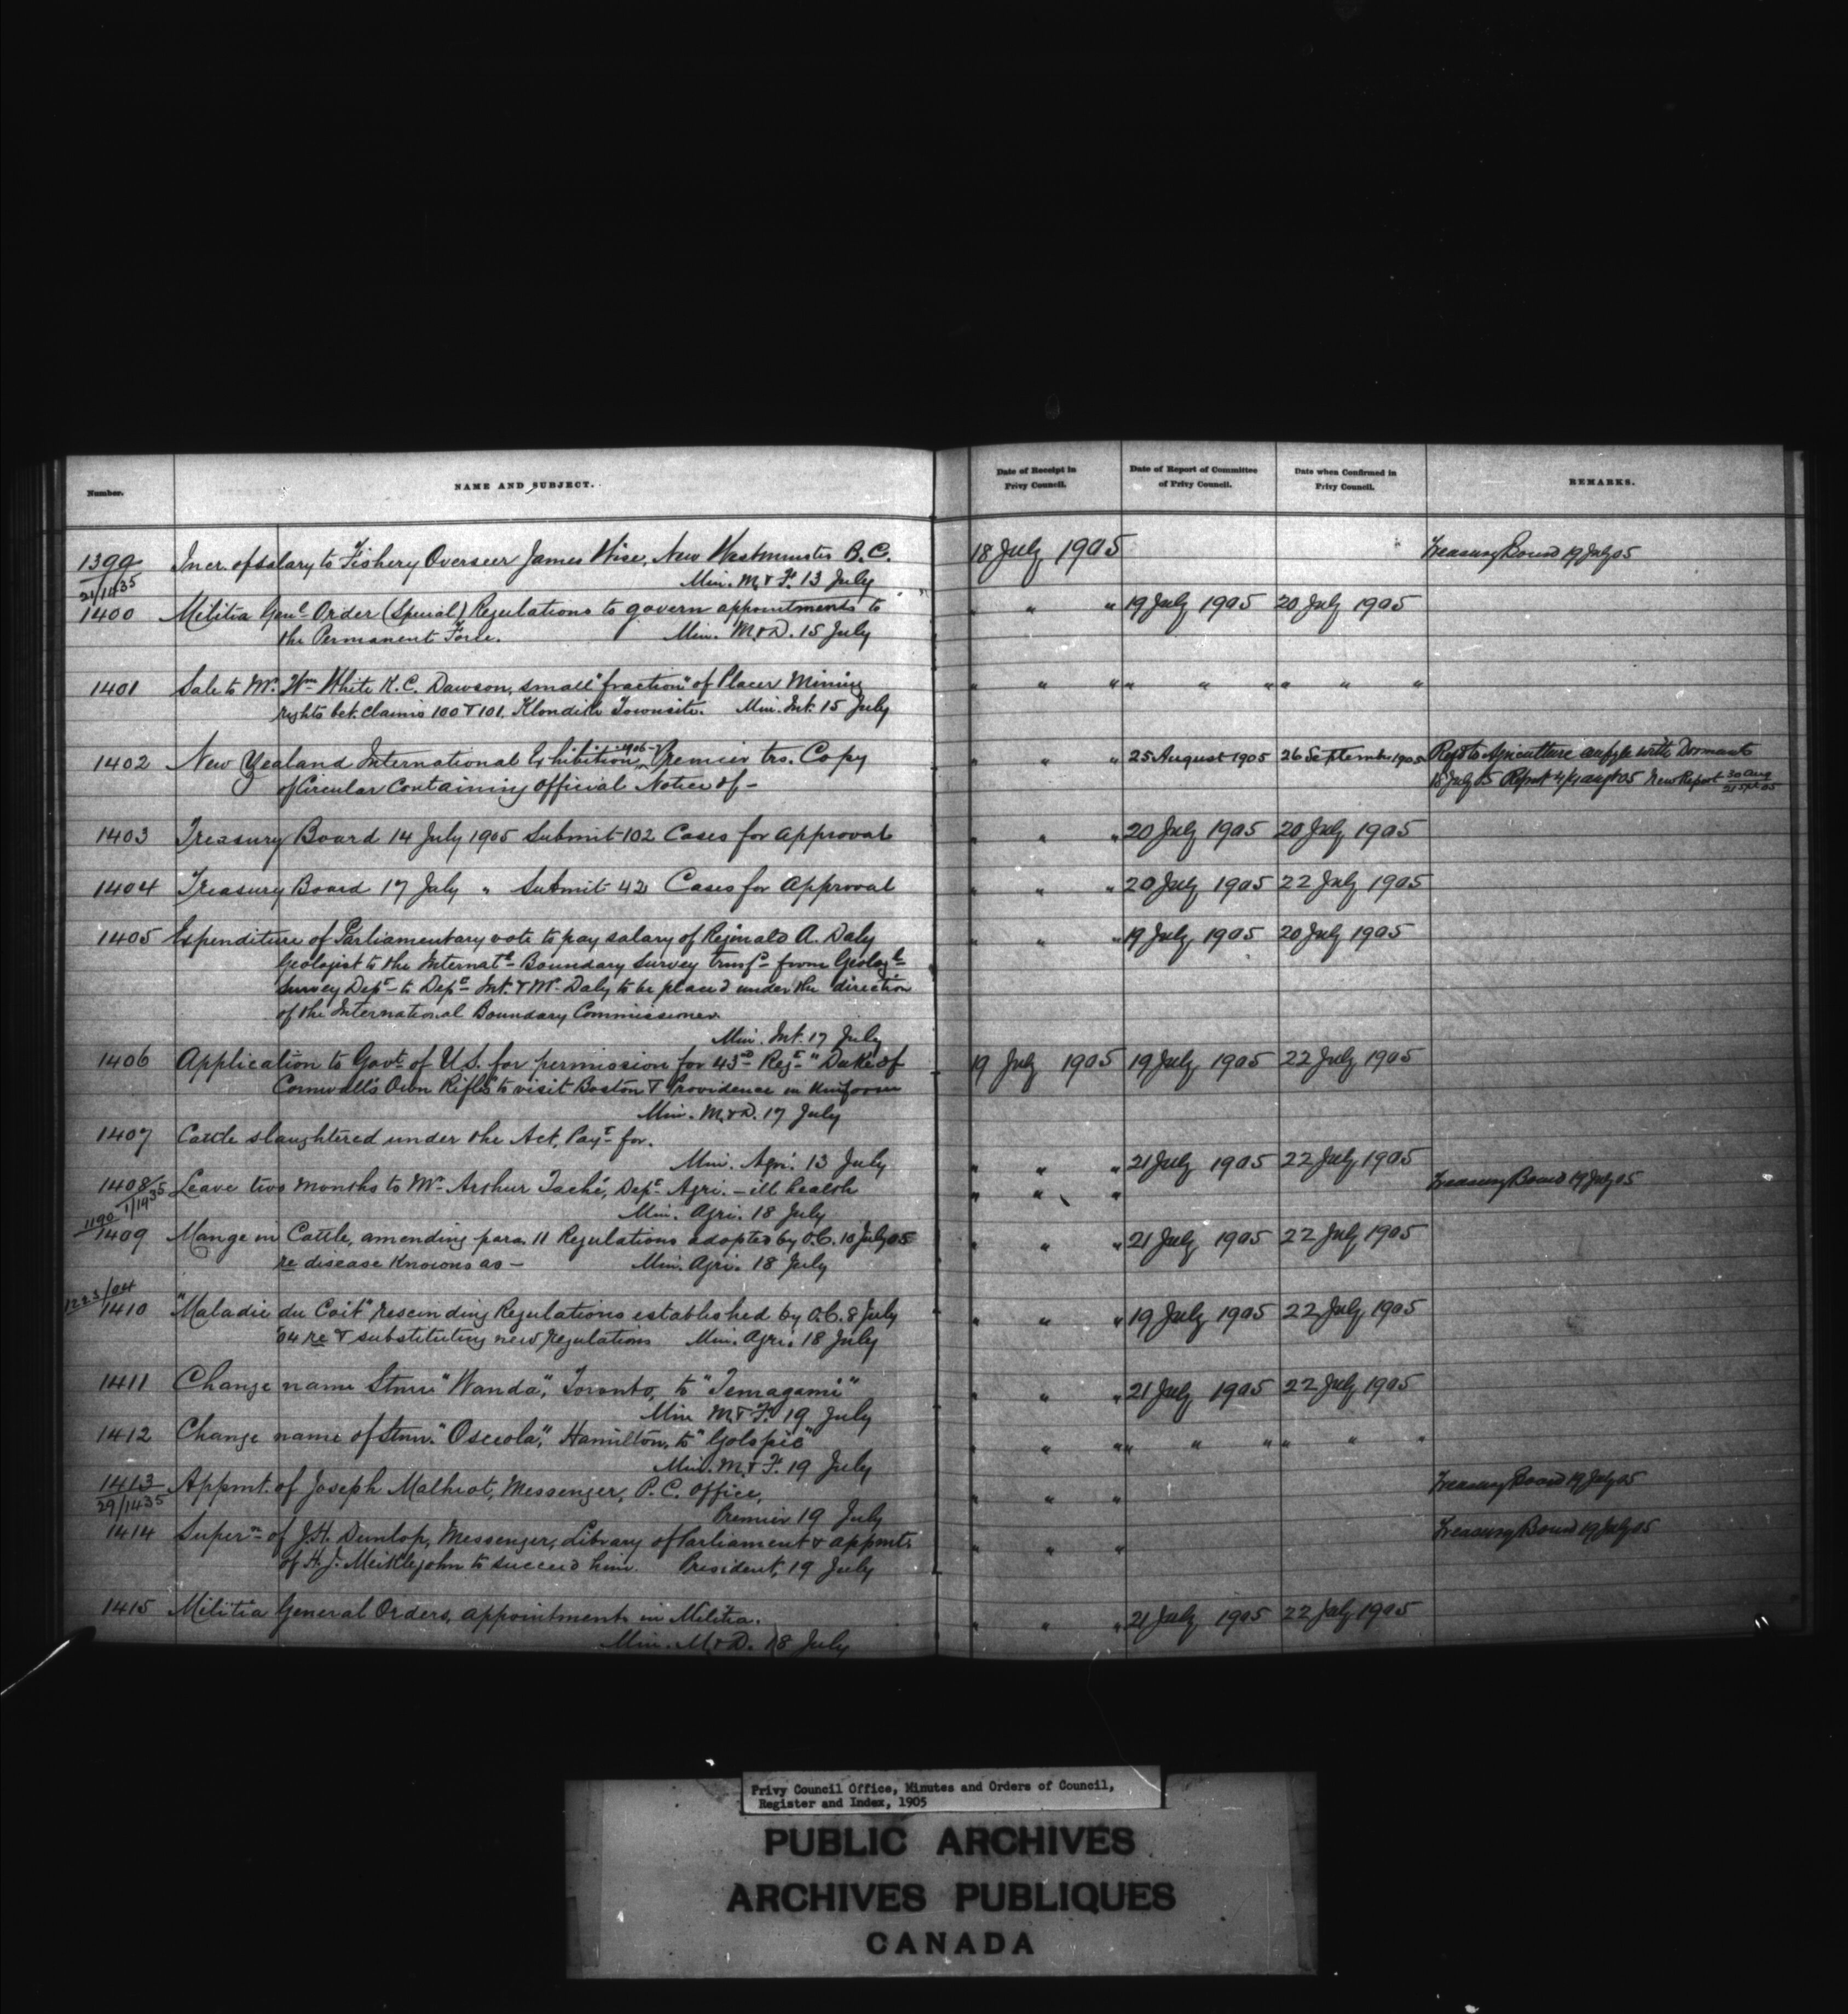 Number. NAME AND SUBJECT. Date of Receipt in Privy Council. Date of Report of Committee of Privy Council. Date when Confirmed in Privy Council. REMARKS.
1399 Incr. of salary to Fishery Overseer James Wise, New Westminster B.C. 18 July 1905 Treasury Board 19 July 05
21/1435 Min. M. & F. 13 July
1400 Militia Genl Order (Special) Regulations to govern appointments to " " " 19 July 1905 20 July 1905
the Permanent Force. Min. M. & D. 15 July
1401 Sale to Mr. Wm White K.C. Dawson, small "fraction" of Placer Mining " " " " " " " " "
rights bet. claims 100 & 101, Klondike Townsite. Min. Int. 15 July
1402 New Zealand International Exhibition 1906 - Premier trs. Copy " " " 25 August 1905 26 September 1905 Refd to Agriculture with Dormants
of Circular Containing Official Notice of - 18 July 05 Report 4/4 augt 05 New Report 30 Aug
21 Spt 05
1403 Treasury Board 14 July 1905 Submit 102 Cases for approval " " " 20 July 1905 20 July 1905
1404 Treasury Board 17 July " Submit 42 Cases for Approval " " " 20 July 1905 22 July 1905
1405 Expenditure of Parliamentary vote to pay salary of Reginald A. Daly " " " 19 July 1905 20 July 1905
Geologist to the Internatl Boundary Survey transfd from Geologl
Survey Dept to Dept Int. & Mr Daly to be placed under the direction
of the International Boundary Commissioner.
Min. Int. 17 July
1406 Application to Govt of U.S. for permission for 43rd Regt "Duke of 19 July 1905 19 July 1905 22 July 1905
Cornwall's Own Rifles" to visit Boston & Providence in Uniform
Min. M. & D. 17 July
1407 Cattle slaughtered under the Act, Payt for.
Min. Agri. 13 July " " " 21 July 1905 22 July 1905
1408 Leave two months to Mr Arthur Taché, Dept Agri. - ill health " " " Treasury Board 19 July 05
1/1435 Min. Agri. 18 July
1190
1409 Mange in Cattle, amending para. 11 Regulations adopted by O.C. 10 July 05 " " " 21 July 1905 22 July 1905
re disease Known as - Min. Agri. 18 July
1223/04
1410 "Maladie du Coit" rescinding Regulations established by O.C. 8 July " " " 19 July 1905 22 July 1905
04 re & substituting new regulations Min. Agri. 18 July
1411 Change name Stmr "Wanda", Toronto, to "Temagami" " " " 21 July 1905 22 July 1905
Min M. & F. 19 July
1412 Change name of Stmr. "Osceola", Hamilton, to "Golspie" " " " " " " " " "
Min. M. & F. 19 July
1413 Appmt. of Joseph Malhiot, Messenger, P.C. Office, " " " Treasury Board 19 July 05
29/1435 Premier 19 July
1414 Supern of J.H. Dunlop, Messenger, Library of Parliament & appmt. " " " Treasury Board 19 July 05
of H. J. Meiklejohn to succeed him. President, 19 July
1415 Militia General Orders, appointments in Militia. " " " 21 July 1905 22 July 1905
Min. M. & D. 18 July
Privy Council Office, Minutes and Orders of Council,
Register and Index, 1905
PUBLIC ARCHIVES
ARCHIVES PUBLIQUES
CANADA